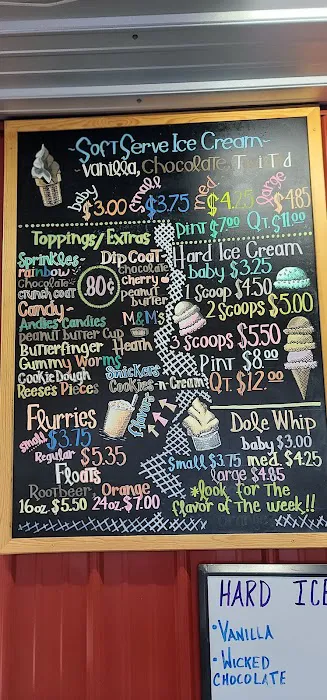 Soft Serve Ice Cream
~Vanilla, Chocolate, T i T d
baby $3.00 small $3.75 med. $4.25 large $4.85
Pint $7.00 Qt. $11.00
Toppings/Extras
Sprinkles~
rainbow
Chocolate
crunch coat
80¢
Dip Coat~
Chocolate
Cherry
peanut
butter
Candy~
Andies Candies
peanut butter Cup
M&M's
Butterfinger
Heath
Gummy Worms
Cookie Dough
Snickers
Reeses Pieces
Cookies-n-Cream
Hard Ice Cream
baby $3.25
1 Scoop $4.50
2 Scoops $5.00
3 Scoops $5.50
Pint $8.00
Qt. $12.00
Flurries
small $3.75
Regular $5.35
flavors
Floats
Rootbeer, Orange
16oz $5.50 24oz $7.00
Dole Whip
baby $3.00
Small $3.75 med. $4.25
large $4.85
*look for the
flavor of the week!!
HARD ICE
• VANILLA
• WICKED
CHOCOLATE